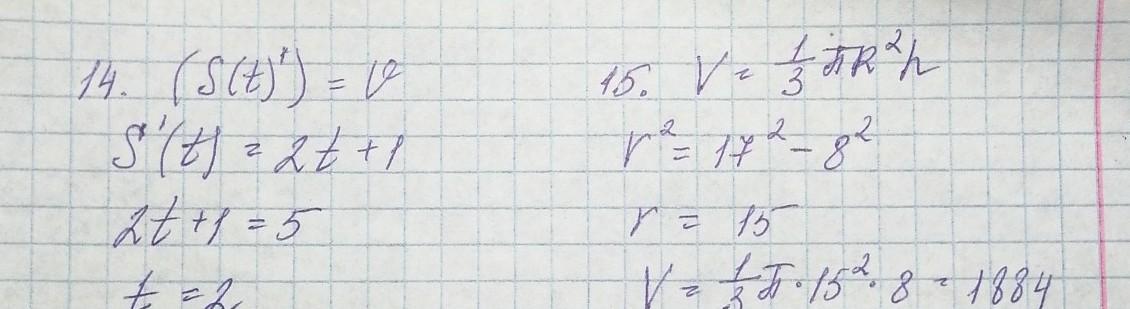 14. (S(t)') = v
S'(t) = 2t + 1
2t + 1 = 5
t = 2
15. V = 1/3 πR²h
r² = 17² - 8²
r = 15
V = 1/3 π · 15² · 8 = 1884